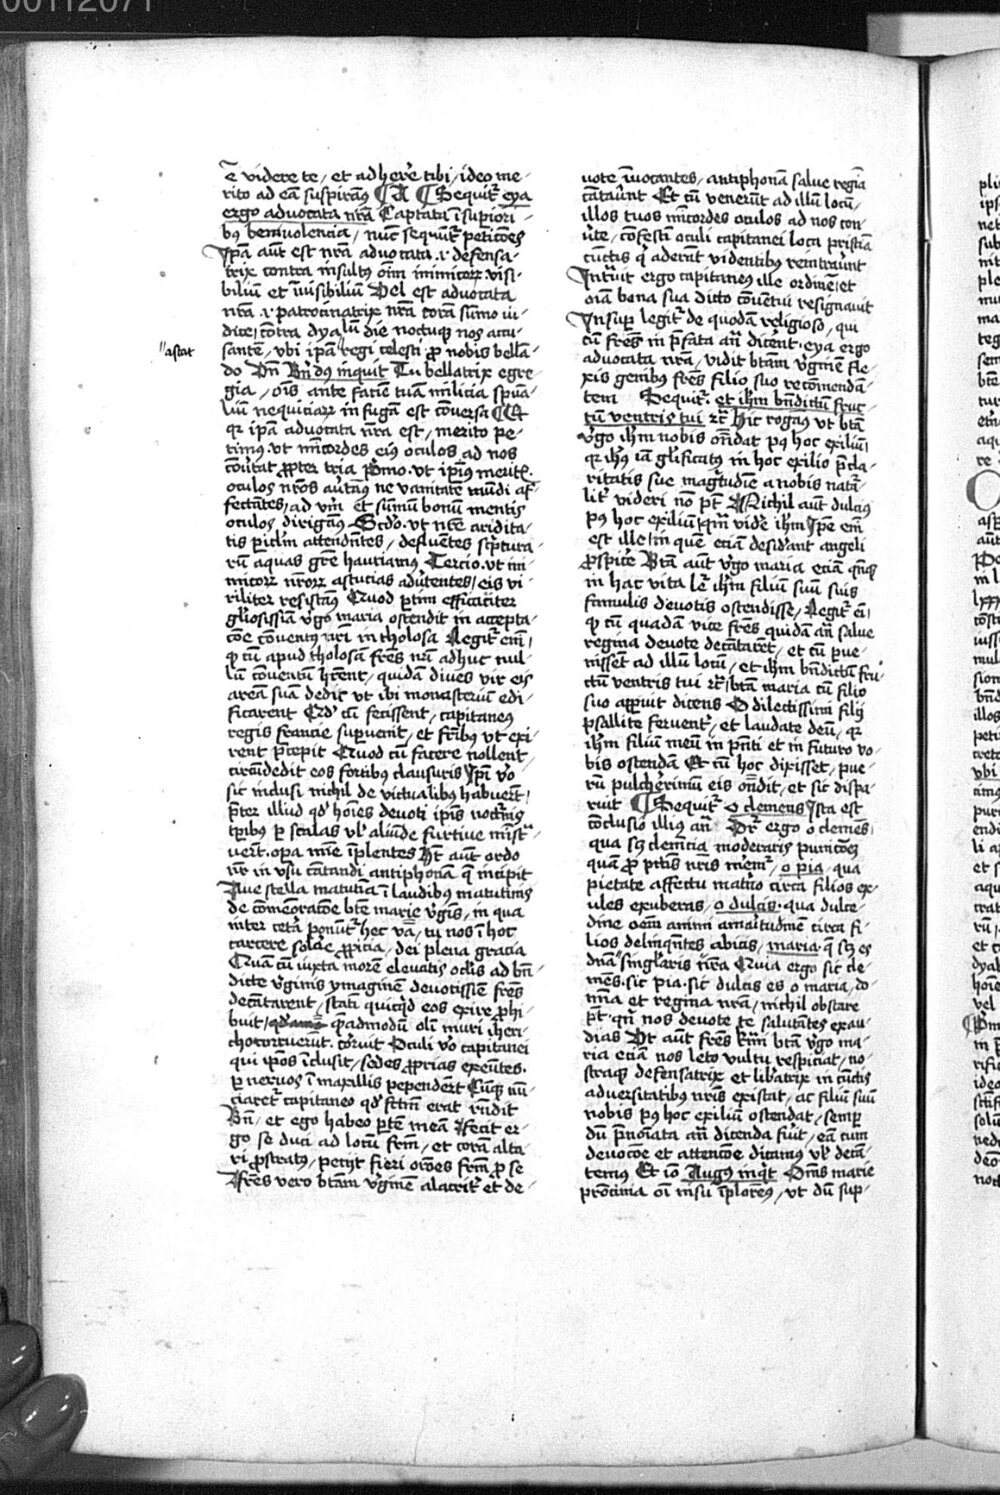 00112071
ē videre te / et adherē tibi / ideo me-
rito ad eā suspiram⁹ ¶ A ¶ Sequit᷑ eya
ergo advocata nr̄a Captata ī supiori-
b⁹ benivolencia / nūc sequūt᷑ peticōes
Ip̄a aūt est nr̄a advocata .i. defensa-
trix contra insult⁹ oīm inimicoꝝ visi-
biliū et īvisibiliū Vel est advocata
nr̄a .i. patrocinatrix nr̄a corā sūmo iu-
dice / cōtra dyalū die noctuqȝ nos accu-
"astat
santē / vbi ip̄a "regi celesti ꝓ nobis bella-
do Vn̄ Bn̄dus inquit Tu bellatrix egre-
gia / oīs ante faciē tuā milicia spūa-
liū nequiciaꝝ in fugā est cōversa ¶ Et
qꝛ ip̄a advocata nr̄a est / merito pe-
tim⁹ vt mīcordes ei⁹ oculos ad nos
cōūtat ꝓpter tria p͛mo vt ip̄ius merit͛
oculos nr̄os aūtam⁹ ne vanitate mūdi af-
fectātes / ad vnū et sūmū bonū mentis
oculos dirigam⁹ Scd̄o vt nr̄e aridita-
tis pīclm̄ attendentes / defluentes sc͛ptura-
rū aquas gr̄e hauriamus Tercio vt ini-
micoꝝ nr̄oꝝ astucias advtentes / eis vi-
riliter resistam⁹ Quod ptim efficaciter
gl̄iosissīa v͛go maria ostendit in accepta-
cōe cōvent⁹ nr̄i in tholosa Legit᷑ em̄ /
ꝙ cū apud tholosā fr̄es nr̄i adhuc nul-
lū cōventū hr̄ent / quidā dives vir eis
areā suā dedit vt ibi monasteriū edi-
ficarent Qd̛ cū fecissent / capitane⁹
regis francie supvenit / et fr̄ibus vt exi-
rent p͛cepit Quod cū facere nollent /
circūdedit eos fortib⁹ clausuris Ip̄i v͛o
sic inclusi nichil de victualib⁹ habuert͛ /
p͛ter illud qd̛ hoīes devoti ip̄is nocturnis
tp̄ibus p scalas vl͛ aliūde furtive mīst͛a-
verūt opa mīe īplentes Hr̄ aūt ordo
nr̄ in vsu cātandi antiphonā q̄ incipit
Ave stella matutina ī laudibus matutinis
de cōmemoracōe bt̄e marie v͛gīs / in qua
inter cetā ponūt᷑ hec v͛ba / tu nos ī hoc
carcere solare ꝓpicia / dei plena gracia
Quā cū iuxta morē elevatis oc̄lis ad bn̄-
dicte v͛ginis ymaginē devotissīe fr̄es
decātarent / statī quicq̄d eos exire ꝓhi-
buit / q̄admodū olī muri iheri-
cho corruerūt cōruit Oculi v͛o capitanei
qui ip̄os īclusit / sedes ꝓprias exeūtes
p nervos ī maxillis pependerūt Cūqȝ nū-
ciaret᷑ capitaneo qd̛ fc̄m erat rn̄dit
Bn̄ / et ego habeo ptē meā Fecit er-
go se duci ad locū fr̄m / et corā alta-
ri ꝓstratus / petijt fieri orōes fr̄m p se
Fr̄es vero bt̄am v͛ginē alacrit͛ et de-
vote īvocantes / antiphonā salve regīa
cātavūt Et cū venerūt ad illū locū /
illos tuos mīcordes oculos ad nos con-
v͛te / cōfestī oculi capitanei loca pristīa
cūctis q̄ aderāt videntibus reintraūnt
Intravit ergo capitaneus ille ordinē / et
oīa bona sua dicto cōventui resignavit
Insup legit᷑ de quodā religioso / qui
cū fr̄es in p͛fata an̄ dicerēt eya ergo
advocata nr̄a / vidit bt̄am v͛ginē fle-
xis genibus fr̄es filio suo recōmendā-
tem Sequit᷑ et ihm̄ bn̄dictū fruc-
tū ventris tui ꝛc̄ Hic rogam⁹ vt bt̄a
v͛go ihm̄ nobis on̄dat pꝰ hoc exiliū /
qꝛ ihūs iā gl̄ificatus in hoc exilio p͛cla-
ritatis sue magītudinē a nobis nat̄a-
lit᷑ videri nō pt̄ Nichil aūt dulcius
pꝰ hoc exiliū q̄m vide͛ ihm̄ Ip̄e em̄
est ille / in quē eciā desid͛ant angeli
ꝓspic͛e Bt̄a aūt v͛go maria eciā qn̄qȝ
in hac vita le͛ ihm̄ filiū suū suis
famulis devotis ostendisse / Legit᷑ em̄
ꝙ cū quadā vice fr̄es quidā an̄ salve
regina devote decātarēt / et cū pve-
nissēt ad illū locū / et ihm̄ bn̄dictū fru-
ctū ventris tui ꝛc̄ / bt̄a maria cū filio
suo apparuit dicens O dilectissimi filij
psallite fervent͛ / et laudate deū / qꝛ
ihm̄ filiū meū in pn̄ti et in futuro vo-
bis ostendā Et cū hoc dixisset / pue-
rū pulcherrimū eis on̄dit / et sic dispa-
ruit ¶ Sequit᷑ o clemens Ista est
cōclusio illius an̄ Dr̄ ergo o clemēs /
qua sȝ clemēcia moderaris punicōeȝ
quā ꝓ pctīs nr̄is mem͛ / o pia / qua
pietate affectu mat͛no circa filios ex-
ules exuberas / o dulcis qua dulce-
dine oēm animi amaītudinē circa fi-
lios delinq̄ntes abicis / maria q̄ sȝ es
dn̄a singl̄aris nr̄a Quia ergo sic cle-
mēs sic pia sic dulcis es o maria / do-
mīa et regina nr̄a / nichil obstare
pt̄ qn̄ nos devote te salutātes exau-
dias Vt aūt fr̄es kmī bt̄a v͛go ma-
ria eciā nos leto vultu respiciat / no-
straqȝ defensatrix et lib͛atrix in cūctis
adversitatibus nr̄is existat / ac filiū suū
nobis pꝰ hoc exiliū ostendat / semp
dū p͛noīata an̄ dicenda fu͛it / eā cum
devocōe et attencōe dicam⁹ vl͛ decā-
tem⁹ Et iō Augus inq̄t Oms̄ marie
p͛conia oī nisu īplorem⁹ / vt dū sup-